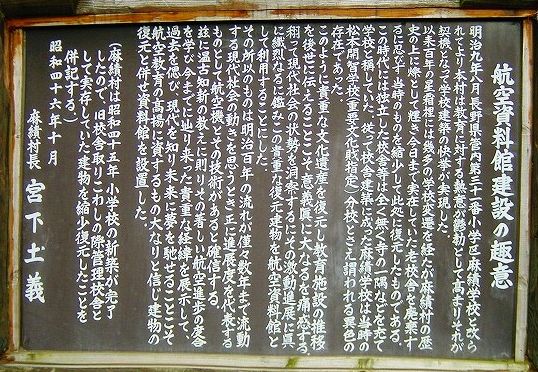 航空資料館建設の趣意
明治九年六月長野県管内第三十一番小学区麻績学校と改ら
れてより本村は教育に対する熱意が鬱勃として高まりそれが
契機となって学校建築の快挙が実現した。
以来百年の星霜裡には幾多の学校変遷を経たが麻績村の歴
史の上に燦として輝き今日まで実存していた老校舎を廃棄す
るに忍びず当時のものを縮小して此処に復元したものである。
この時代には独立した校舎等は全く無く寺の一隅などを充て
学校と称していた。従って校舎建築に成った麻績学校は当時の
松本開智学校(重要文化財指定)分校とさえ謂われる異色の
存在であった。
このように貴重な文化遺産を復元し教育施設の推移
を後世に伝えることこそ意義真に大なるを痛感する。
翻って現代社会の状勢を洞察するにその激動進展に真
に熾烈なるに鑑みこの貴重な復元建物を航空資料館と
して利用することにした。
その所以のものは明治百年の流れが僅々数年まで流動
する現代社会の動きを思うとき正に進展度を代表する
ものとして航空機とその技術があると確信する。
玆に温古知新の教えに則りその著しい航空進歩の度合
を学び今までに辿り来った貴重な経緯を展示して、
過去を偲び、現代を知り未来に夢を馳せることこそ
航空教育の高揚に資するもの大なりと信じ建物の
復元と併せ資料館を設置した。
(麻績村は昭和四十五年小学校の新築が完了
したので旧校舎取りこわしの際管理校舎と
して実存していた建物を縮小復元したことを
併記する)
昭和四十六年十月
麻績村長 宮下土義